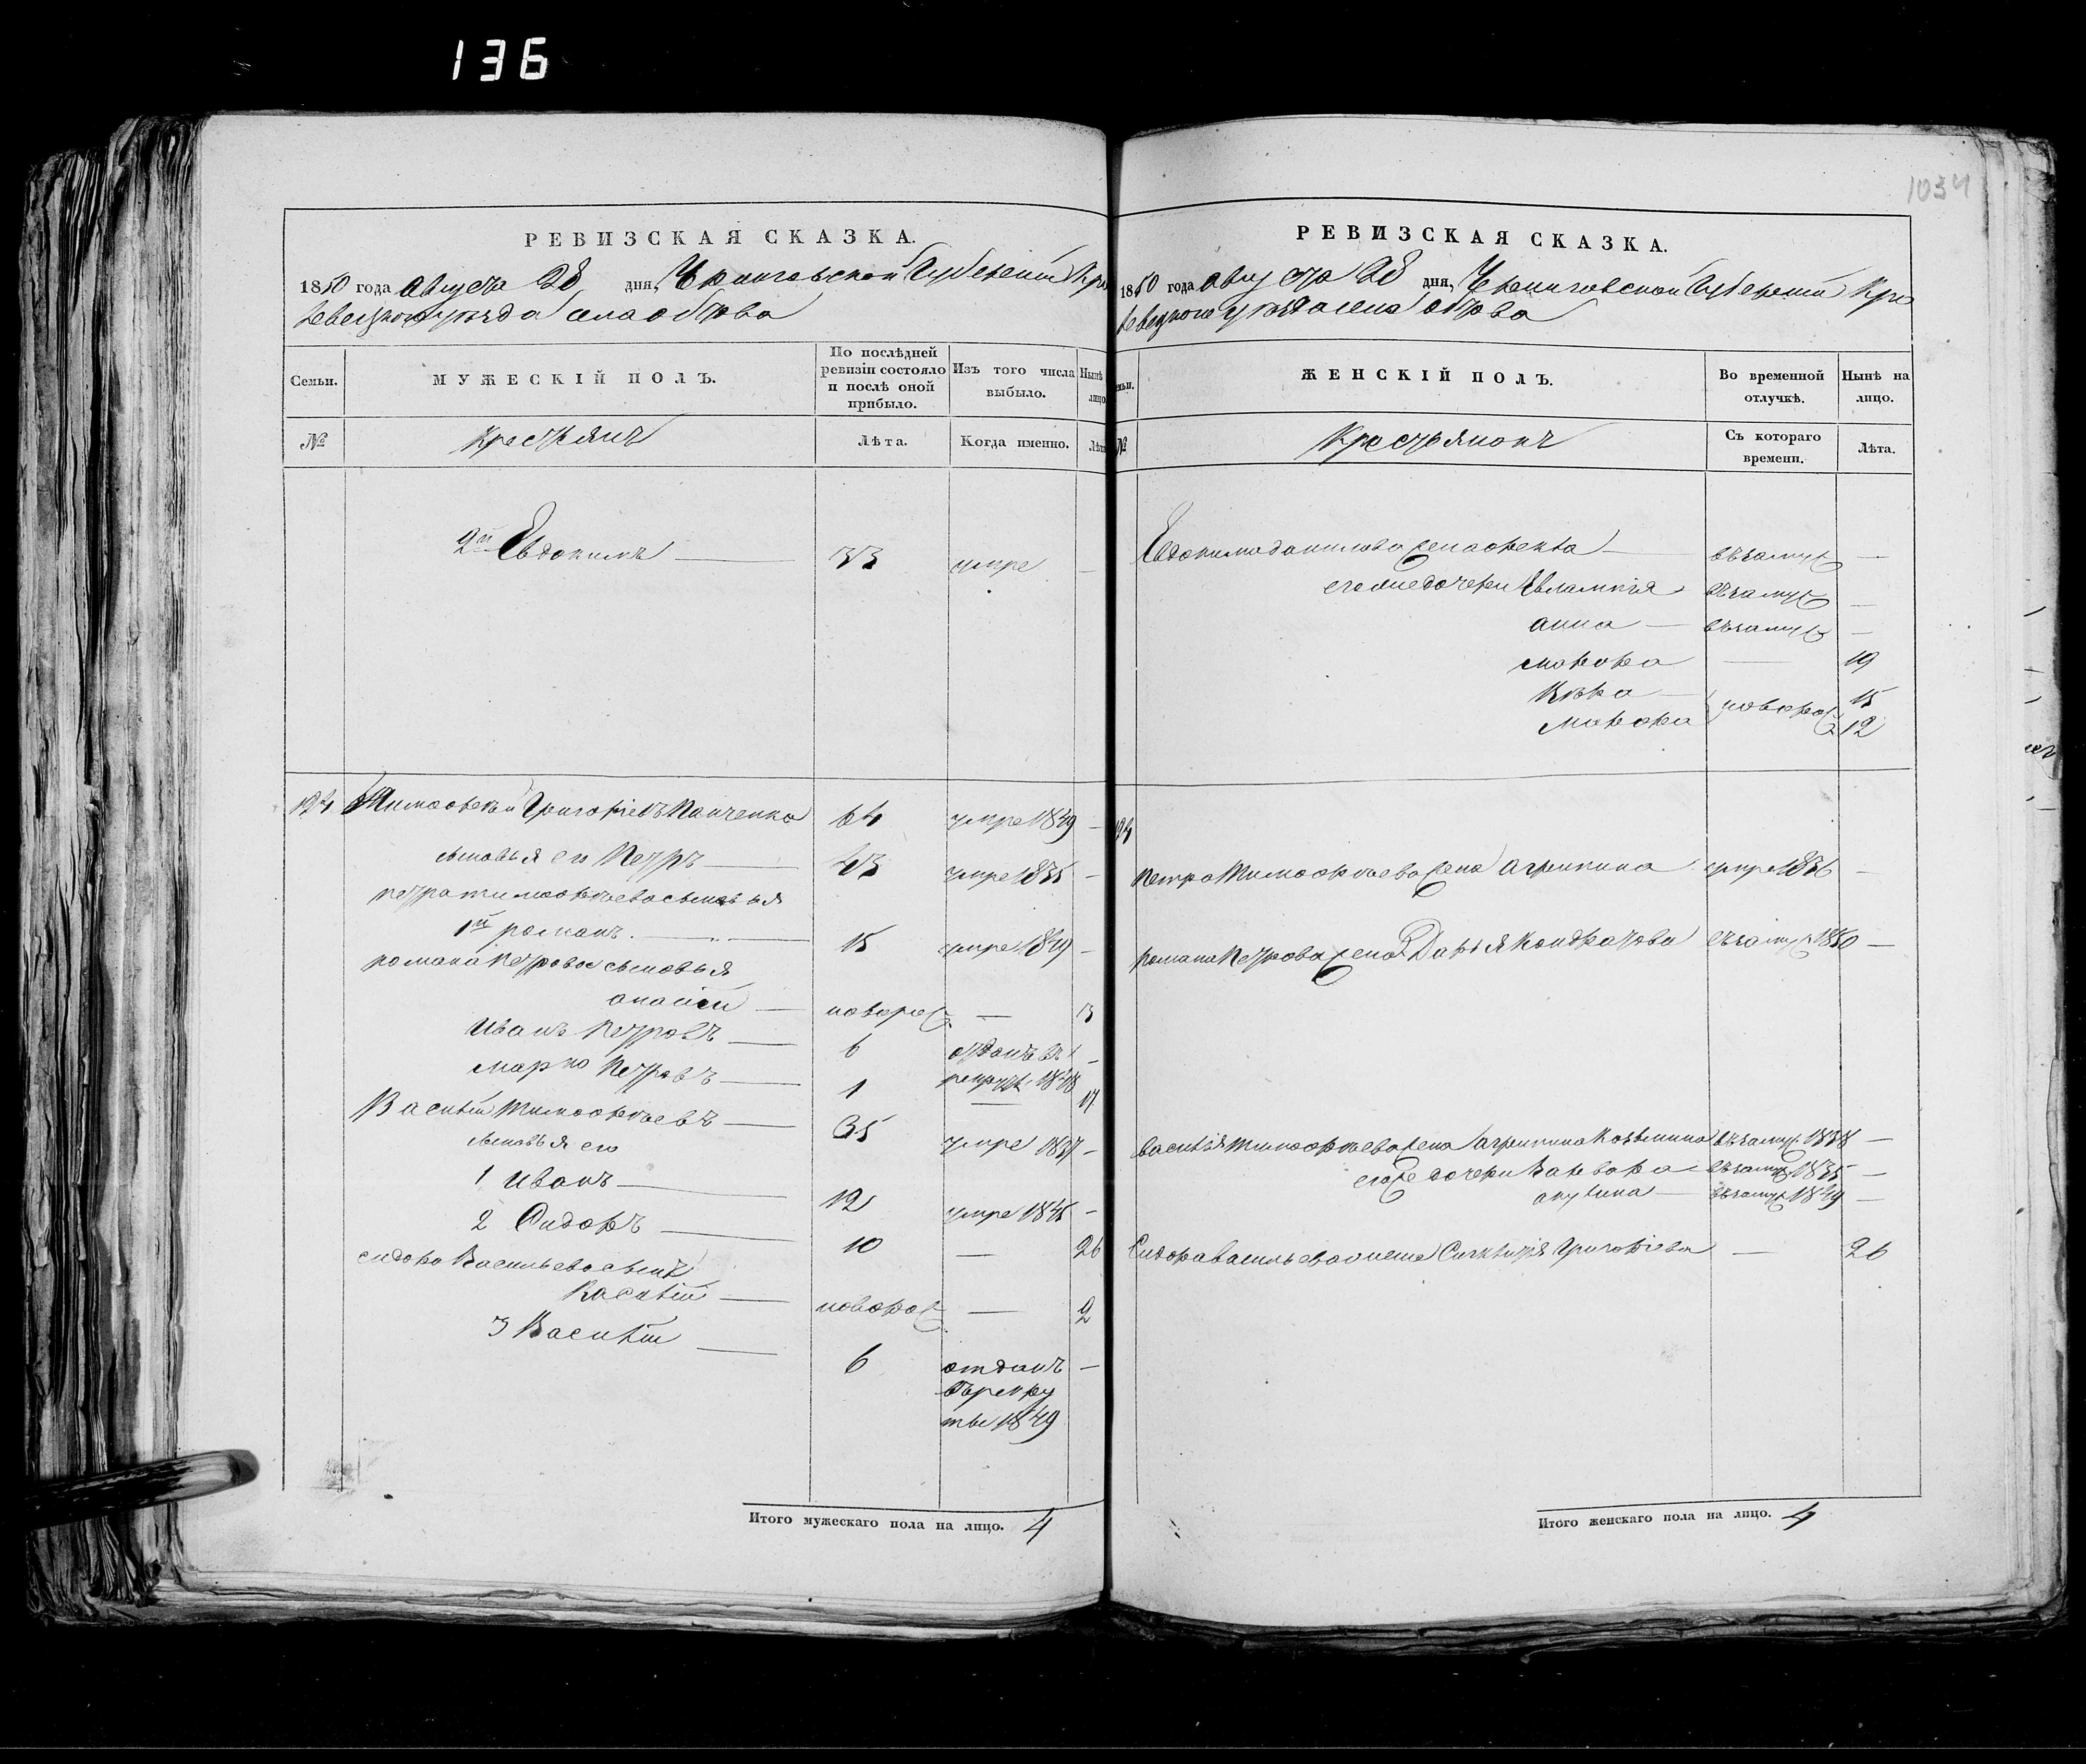 136
1034
РЕВИЗСКАЯ СКАЗКА.
1850 года августа 28 дня, Черниговской Губернии Кро
левецкого уезда села
МУЖЕСКІЙ ПОЛЪ.
Семьи.
По послѣдней ревизіи состояло и послѣ оной прибыло.
Изъ того числа выбыло.
Нынѣ лицо
№
Крестьянъ
Лѣта.
Когда именно.
Лѣта
2й Евдокимъ — 33 умре —
124 Тимофей Григорьевъ Панченко 64 умре 1849 —
сыновья его Петръ — 43 умре 1835 —
Петра Тимофеева сыновья
1й романъ. — 15 умре 1849 —
романа Петрова сыновья
— новорож — 3
Иванъ Петровъ — 6 отданъ въ рекруты 1848 —
Марко Петровъ — 1 — 17
Василій Тимофеевъ — 35 умре 1837 —
сыновья его
1 Иванъ — 12 умре 1845 —
2 Сидоръ — 10 — 26
сидора Васильева сынъ
Василій — новорож — 2
3 Василій — 6 отданъ —
въ рекру
ты 1849
Итого мужескаго пола на лицо. 4
РЕВИЗСКАЯ СКАЗКА.
1850 года августа 28 дня, Черниговской Губернии Кро
левецкого уезда села
Семьи.
ЖЕНСКІЙ ПОЛЪ.
Во временной отлучкѣ.
Нынѣ на лицо.
№
Крестьянокъ
Съ котораго времени.
Лѣта.
Евдокима данилова жена — въ замуж —
его же дочери Евлампія въ замуж —
анна — въ замуж —
— 19
Вѣра — новорож 15
12
124
Петра Тимофеева жена Агрипина умре 1836 —
романа Петрова жена Дарья Кондратова въ замуж 1850 —
василія Тимофеева жена агрипина Козьмина въ замуж 1838 —
его же дочери Варвара — въ замуж 1835 —
акулина — въ замуж 1849 —
Сидора васильева жена Григорьева — 26
Итого женскаго пола на лицо. 4